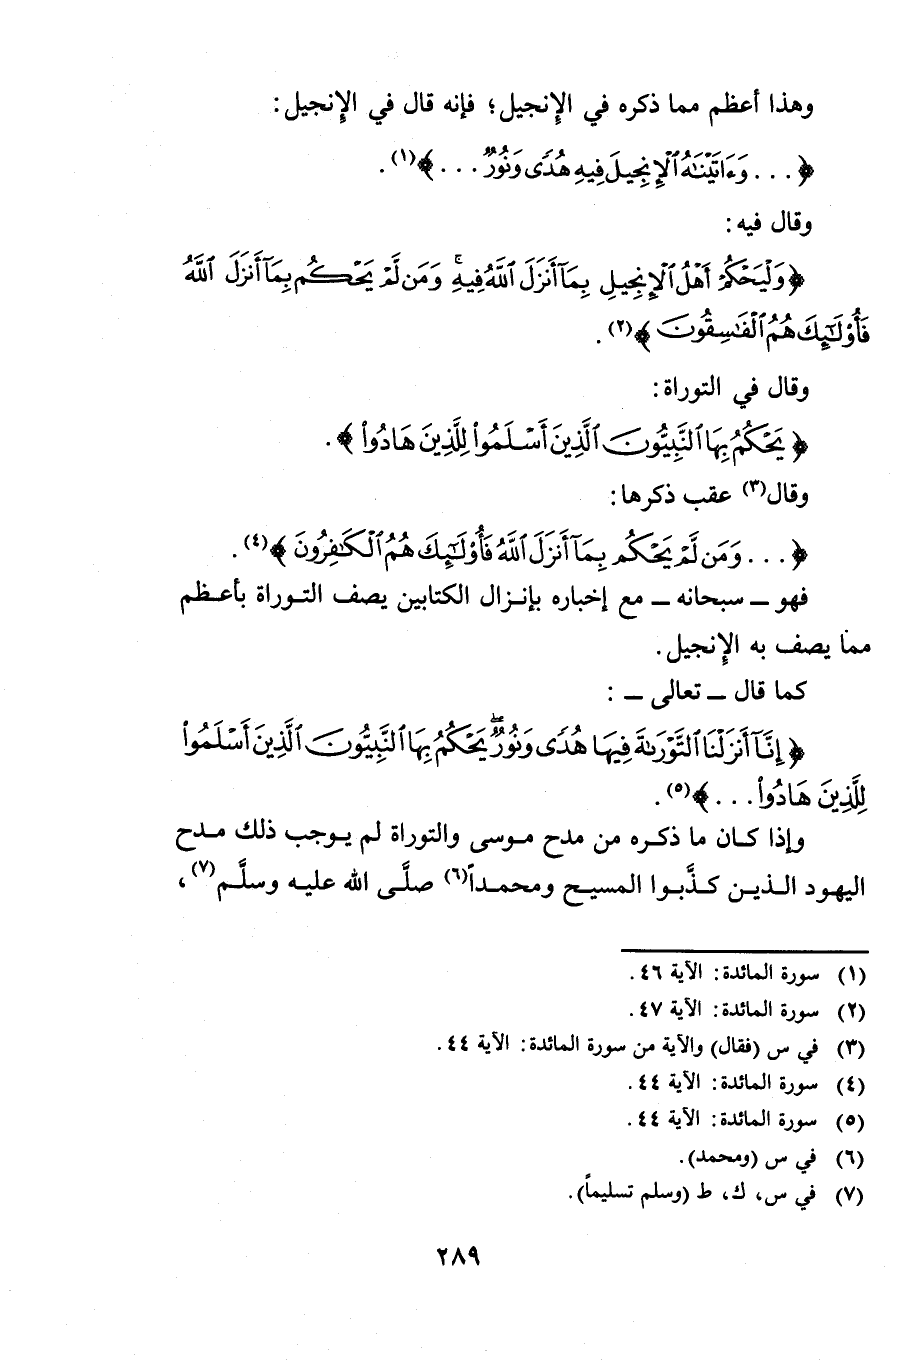 وهذا أعظم مما ذكره في الإنجيل؛ فإنه قال في الإنجيل:
﴿... وَءَاتَيْنَٰهُ ٱلْإِنجِيلَ فِيهِ هُدًى وَنُورٌ ...﴾(١).
وقال فيه:
﴿وَلْيَحْكُمْ أَهْلُ ٱلْإِنجِيلِ بِمَآ أَنزَلَ ٱللَّهُ فِيهِ ۚ وَمَن لَّمْ يَحْكُم بِمَآ أَنزَلَ ٱللَّهُ
فَأُوْلَٰٓئِكَ هُمُ ٱلْفَٰسِقُونَ﴾(٢).
وقال في التوراة:
﴿يَحْكُمُ بِهَا ٱلنَّبِيُّونَ ٱلَّذِينَ أَسْلَمُوا۟ لِلَّذِينَ هَادُوا۟﴾.
وقال(٣) عقب ذكرها:
﴿... وَمَن لَّمْ يَحْكُم بِمَآ أَنزَلَ ٱللَّهُ فَأُوْلَٰٓئِكَ هُمُ ٱلْكَٰفِرُونَ﴾(٤).
فهو ــ سبحانه ــ مع إخباره بإنـزال الكتابين يصف التـوراة بأعـظم
مما يصف به الإنجيل.
كما قال ــ تعالى ــ :
﴿إِنَّآ أَنزَلْنَا ٱلتَّوْرَىٰةَ فِيهَا هُدًى وَنُورٌ ۖ يَحْكُمُ بِهَا ٱلنَّبِيُّونَ ٱلَّذِينَ أَسْلَمُوا۟
لِلَّذِينَ هَادُوا۟ ...﴾(٥).
وإذا كـان ما ذكـره من مدح مـوسى والتوراة لم يـوجب ذلك مـدح
اليهـود الـذيـن كـذَّبـوا المسيـح ومحمـداً(٦) صلَّـى الله عليـه وسلَّـم(٧)،
(١) سورة المائدة: الآية ٤٦.
(٢) سورة المائدة: الآية ٤٧.
(٣) في س (فقال) والآية من سورة المائدة: الآية ٤٤.
(٤) سورة المائدة: الآية ٤٤.
(٥) سورة المائدة: الآية ٤٤.
(٦) في س (ومحمد).
(٧) في س، ك، ط (وسلم تسليماً).
٢٨٩